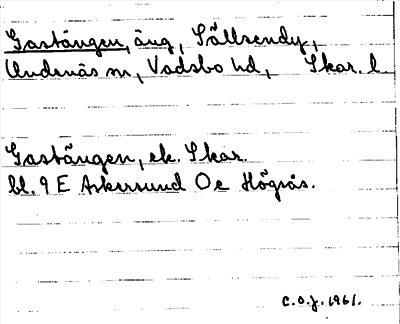 Gastängen, äng, Sällsendy,
Undenäs sn, Vadsbo hd, Skar. l.
Gastängen, ek. Skar.
bl. 9 E Askersund Oe Högsås.
C.O.J. 1961.